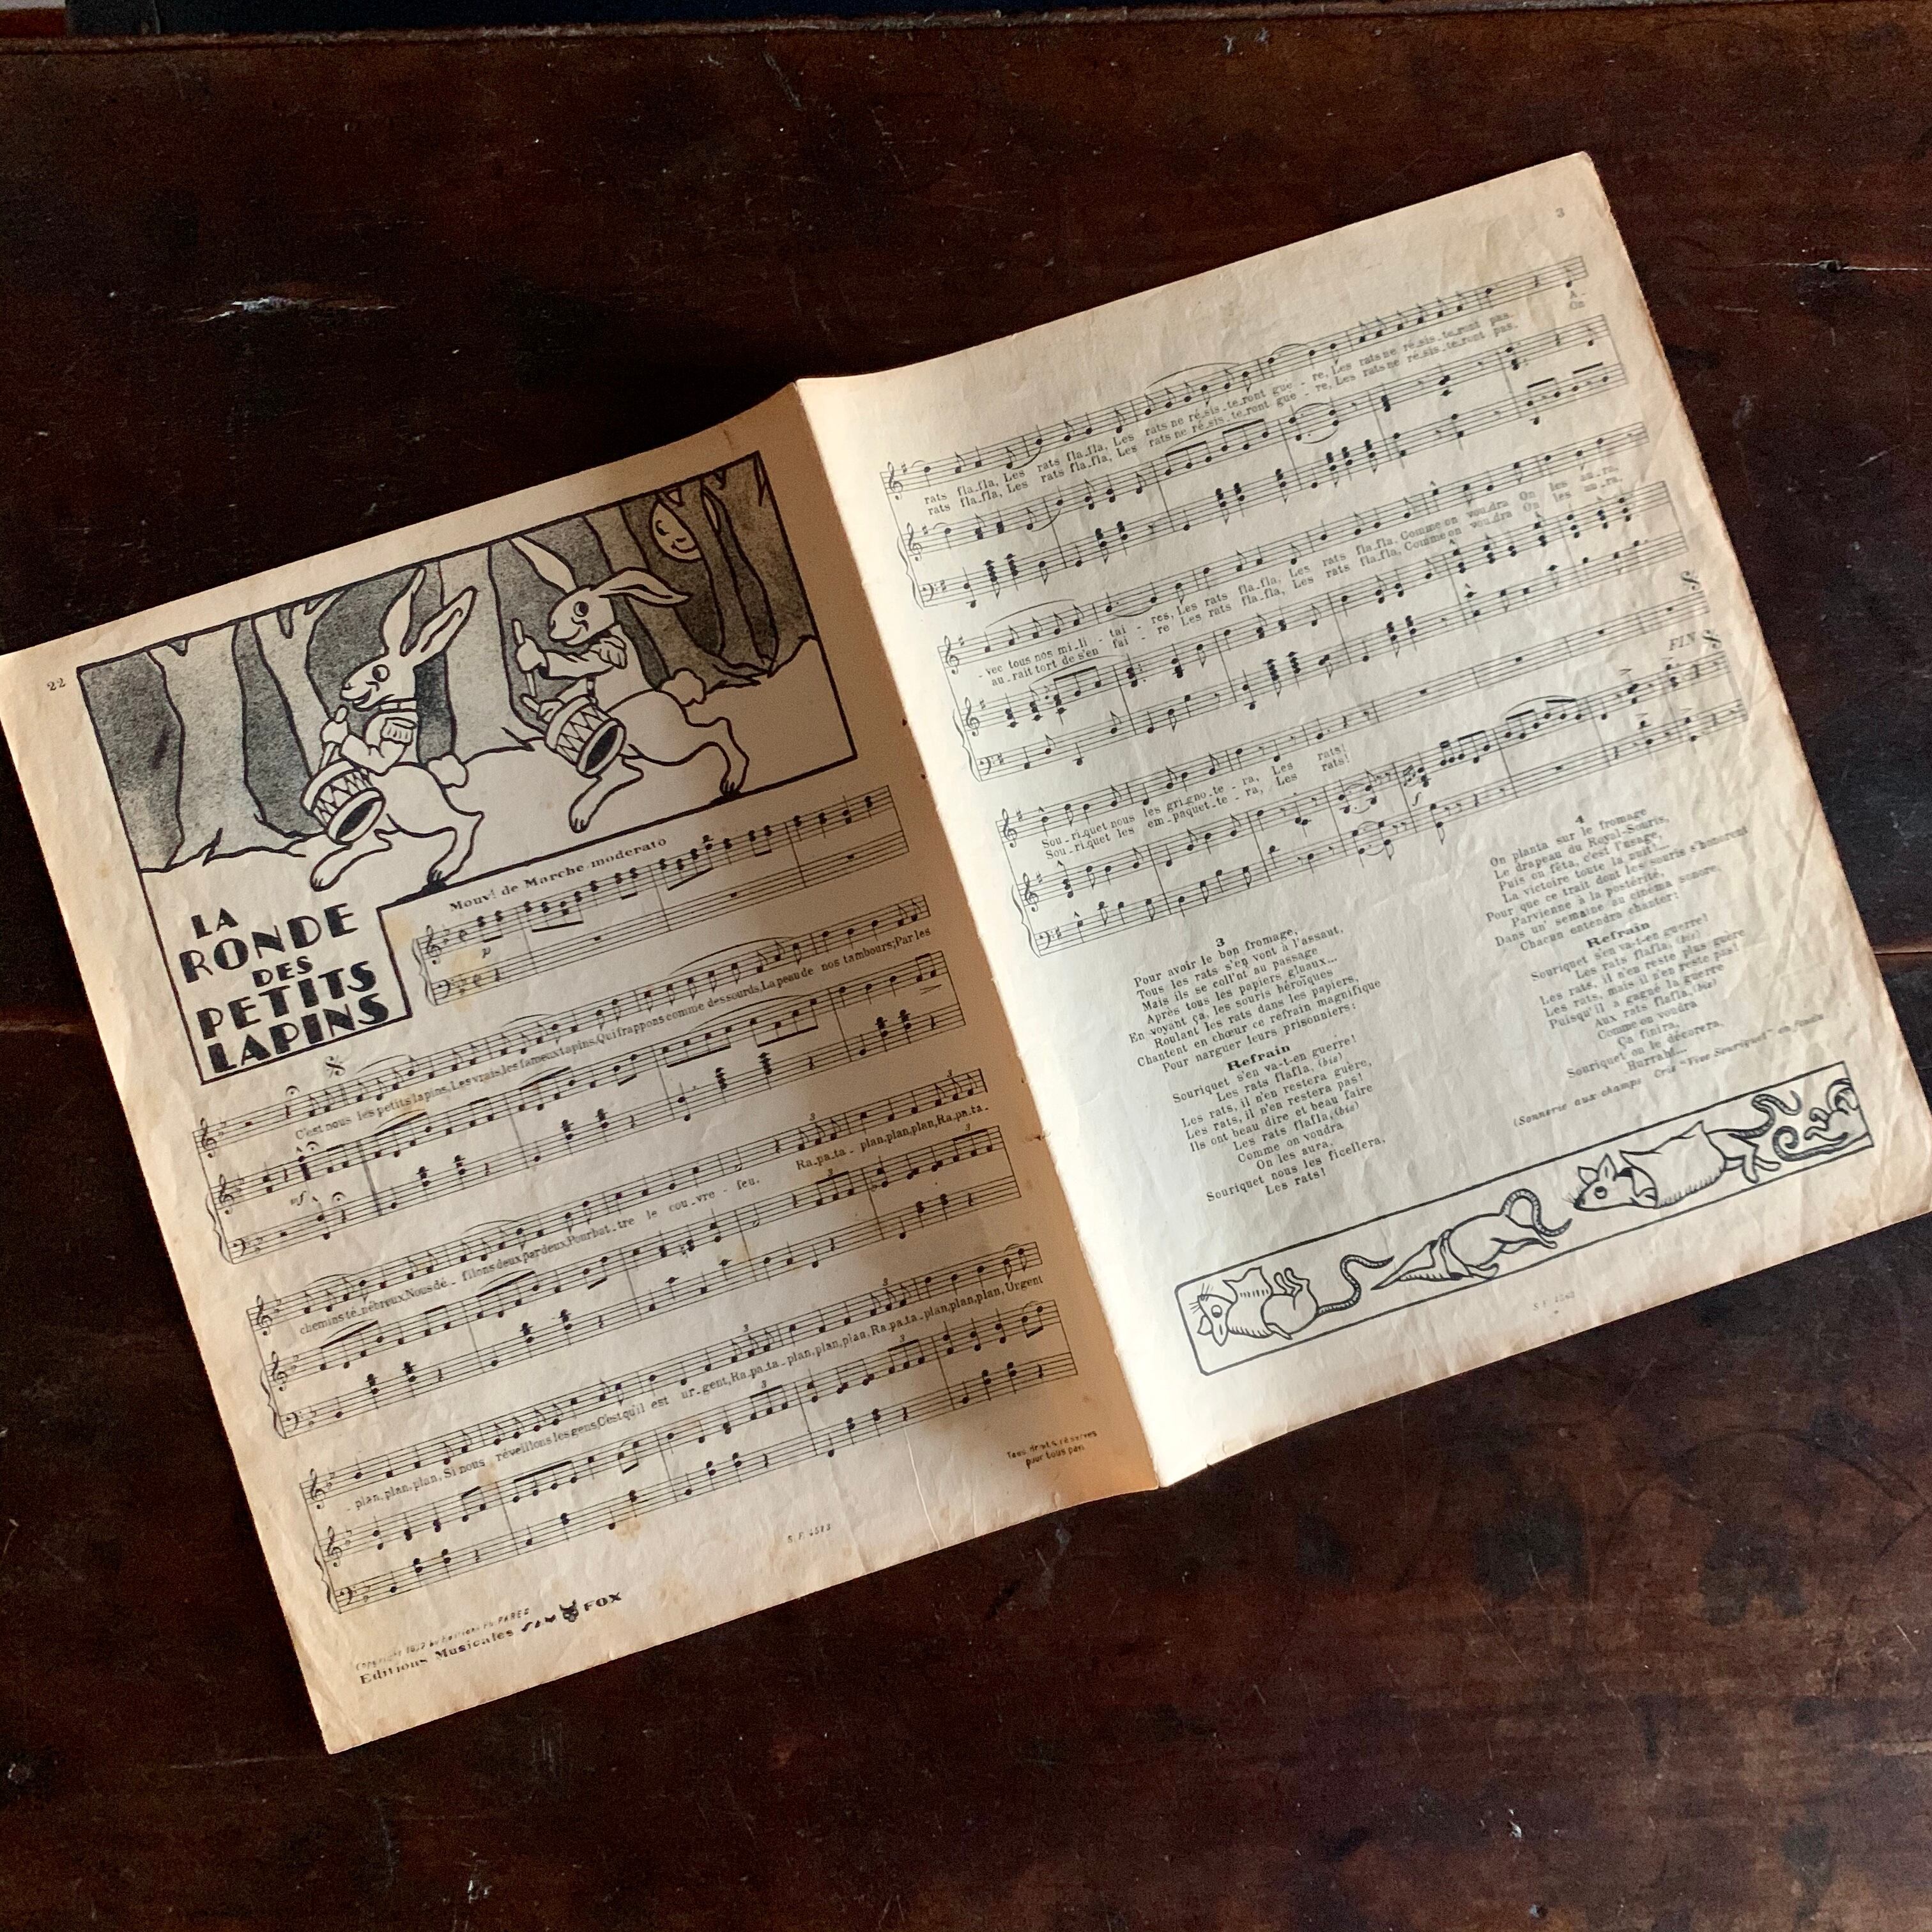 22
LA
RONDE
DES
PETITS
LAPINS
Mouvt de Marche moderato
p
C'est nous les petits lapins, Les vrais, les fameux lapins, Qui frappons comme des sourds, La peau de nos tambours; Par les
mf
chemins té_nébreux, Nous dé_filons deux par deux, Pour bat_tre le cou_vre - feu. Ra_pa_ta_plan, plan, plan, Ra_pa_ta_
3
3
_plan, plan, plan, Si nous réveillons les gens, C'est qu'il est ur_gent, Ra_pa_ta_plan, plan, plan, Ra_pa_ta_plan, plan, plan, Urgent
3
3
Tous droits réservés
pour tous pays
S. F. 4583
Editions Musicales SAM FOX
3
rats fla_fla, Les rats fla_fla, Les rats ne ré_sis_te_ront gue - re, Les rats ne ré_sis_te_ront pas. A-
rats fla_fla, Les rats fla_fla, Les rats ne ré_sis_te_ront gue - re, Les rats ne ré_sis_te_ront pas. On
-vec tous nos mi_li - tai - res, Les rats fla_fla, Les rats fla_fla, Comme on vou_dra On les au_ra,
au_rait tort de s'en fai - re Les rats fla_fla, Les rats fla_fla, Comme on vou_dra On les au_ra,
FIN
Sou_ri_quet nous les gri_gno_te - ra, Les rats!
Sou_ri_quet les em_paquet_te - ra, Les rats!
f
3
Pour avoir le bon fromage,
Tous les rats s'en vont à l'assaut,
Mais ils se coll'nt au passage
Après tous les papiers gluaux...
En voyant ça, les souris héroïques
Roulant les rats dans les papiers,
Chantent en chœur ce refrain magnifique
Pour narguer leurs prisonniers:
Refrain
Souriquet s'en va-t-en guerre!
Les rats flafla, (bis)
Les rats, il n'en restera guère,
Les rats, il n'en restera pas!
Ils ont beau dire et beau faire
Les rats flafla, (bis)
Comme on voudra
On les aura,
Souriquet nous les ficellera,
Les rats!
4
On planta sur le fromage
Le drapeau du Royal-Souris,
Puis on fêta, c'est l'usage,
La victoire toute la nuit!...
Pour que ce trait dont les souris s'honorent
Parvienne à la postérité,
Dans un' semaine au cinéma sonore,
Chacun entendra chanter:
Refrain
Souriquet s'en va-t-en guerre!
Les rats flafla, (bis)
Les rats, il n'en reste plus guère
Les rats, mais il n'en reste pas!
Puisqu'il a gagné la guerre
Aux rats flafla, (bis)
Comme on voudra
Ça finira,
Souriquet on le décorera,
Hurrah!...
(Sonnerie aux champs Cris "Vive Souriquet" en foule